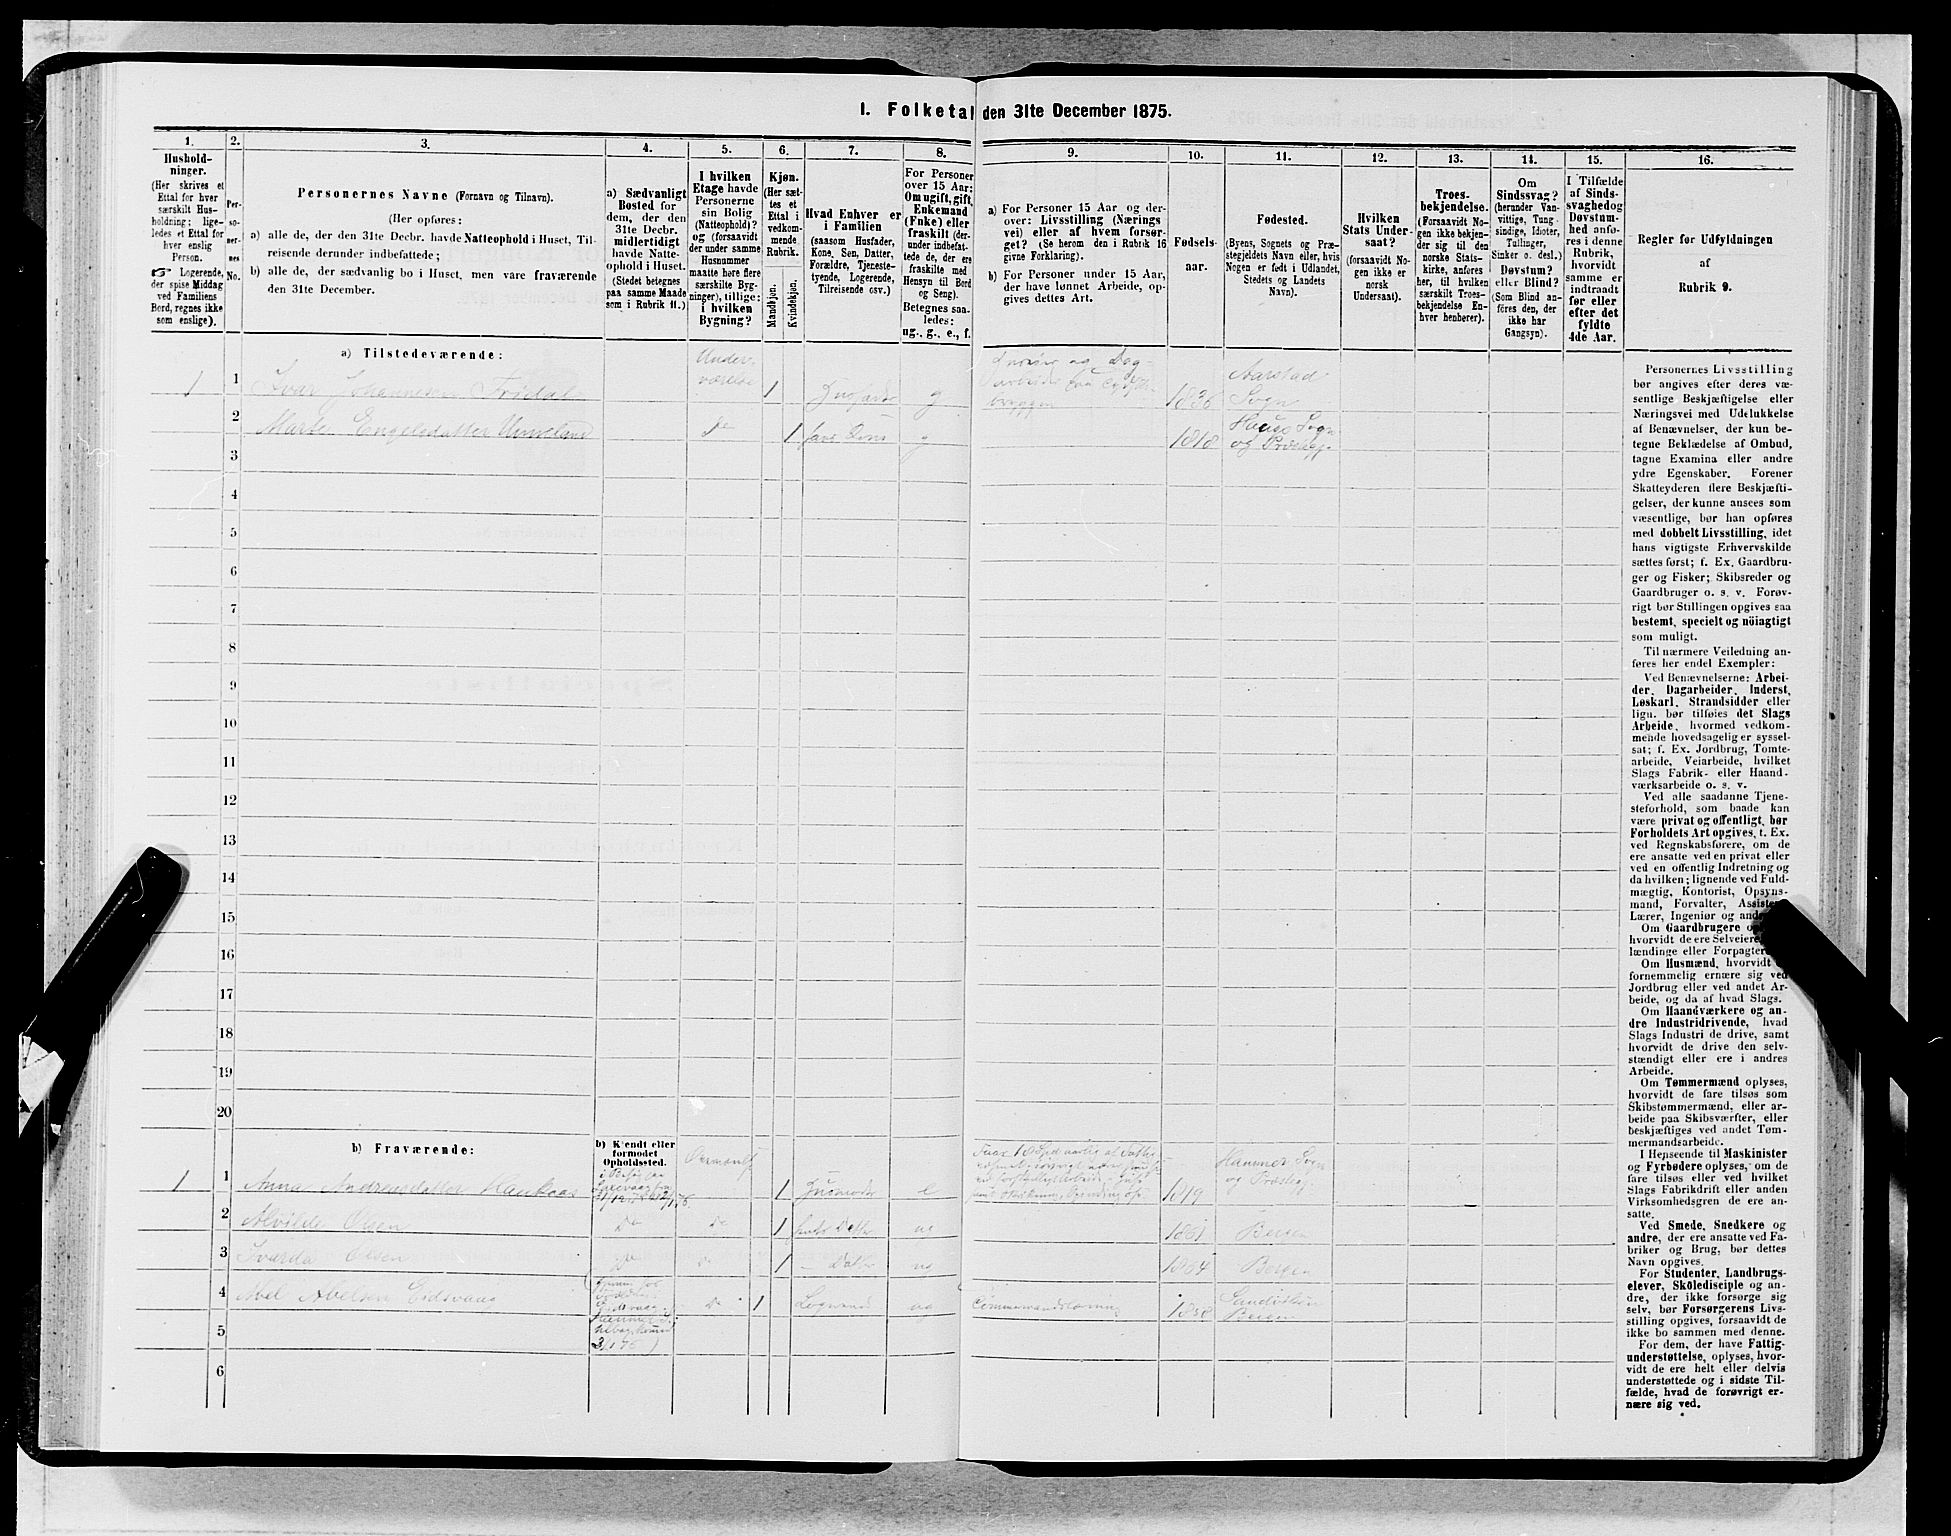 1. Folketal den 31te December 1875.
1.
Hushold-
ninger.
(Her skrives et
Ettal for hver
særskilt Hus-
holdning; lige-
ledes et Ettal for
hver enslig
Person.
☞ Logerende,
der spise Middag
ved Familiens
Bord, regnes ikke
som enslige).
2.
Per-
so-
ner-
nes
No.
3.
Personernes Navne (Fornavn og Tilnavn).
(Her opføres:
a) alle de, der den 31te Decbr. havde Natteophold i Huset, Til-
reisende derunder indbefattede;
b) alle de, der sædvanlig bo i Huset, men vare fraværende
den 31te December.
4.
a) Sædvanligt
Bosted for
dem, der den
31te Decbr.
midlertidigt
havde Natte-
ophold i Huset.
(Stedet betegnes
paa samme Maade
som i Rubrik 11.)
5.
I hvilken
Etage havde
Personerne
sin Bolig
(Natteophold)?
og (forsaavidt
der under samme
Husnummer
maatte høre flere
særskilte Byg-
ninger), tillige:
i hvilken
Bygning?
6.
Kjøn.
(Her sæt-
tes et
Ettal i
vedkom-
mende
Rubrik.
Mandkjøn.
Kvindekjøn.
7.
Hvad Enhver er
i Familien
(saasom Husfader,
Kone, Søn, Datter,
Forældre, Tjeneste-
tyende, Logerende,
Tilreisende osv.).
8.
For Personer
over 15 Aar:
Om ugift, gift,
Enkemand
(Enke) eller
fraskilt (der-
under indbefat-
tede de, der ere
fraskilte med
Hensyn til Bord
og Seng).
Betegnes saa-
ledes:
ug., g., e., f.
9.
a) For Personer 15 Aar og der-
over: Livsstilling (Nærings
vei) eller af hvem forsør-
get? (Se herom den i Rubrik 16
givne Forklaring).
b) For Personer under 15 Aar,
der have lønnet Arbeide, op-
gives dettes Art.
10.
Fødsels-
aar.
11.
Fødested.
(Byens, Sognets og Præ-
stegjeldets Navn eller, hvis
Nogen er født i Udlandet,
Stedets og Landets
Navn).
12.
Hvilken
Stats Under-
saat?
(forsaavidt No-
gen ikke er
norsk
Undersaat).
13.
Troes-
bekjendelse.
(Forsaavidt No-
gen ikke bekjen-
der sig til den
norske Stats-
kirke, anføres
her, til hvilken
særskilt Troes-
bekjendelse En-
hver henhører).
14.
Om
Sindssvag?
(herunder Van-
vittige, Tung-
sindige, Idioter,
Tullinger,
Sinker o. desl.)
Døvstum?
eller Blind?
(Som Blind an-
føres den, der
ikke har
Gangsyn).
15.
I Tilfælde
af Sinds-
svaghed og
Døvstum-
hed anfø-
res i denne
Rubrik,
hvorvidt
samme er
indtraadt
før eller
efter det
fyldte
4de Aar.
16.
Regler før Udfyldningen
af
Rubrik 9.
a) Tilstedeværende:
1 1 Ivar Johannesen Under-
værelse 1 Husfader g og Dag-
arbeider 1836 Aarstad
Sogn
2 Marte Engelsdatter do 1 hans Kone g 1818 Hause Sogn
og Præstegj.
3
4
5
6
7
8
9
10
11
12
13
14
15
16
17
18
19
20
b) Fraværende:
b) Kjendt eller
formodet
Opholdssted.
1 1 Anna Andreasdatter Haukaas 1 Husmoder e 1819 Hammer Sogn
og Præstegj.
2 Alvilde Olsen do do 1 hendes Datter ug 1861 Bergen
3 Olsen do do 1 – Datter ug 1864 Bergen
4 Abel Abelsen Eidsvaag do 1 Logerende ug 1858
5
6
Personernes Livsstilling
bør angives efter deres væ-
sentlige Beskjæftigelse eller
Næringsvei med Udelukkelse
af Benævnelser, der kun be-
tegne Beklædelse af Ombud,
tagne Examina eller andre
ydre Egenskaber. Forener
Skatteyderen flere Beskjæfti-
gelser, der kunne ansees som
væsentlige, bør han opføres
med dobbelt Livsstilling, idet
hans vigtigste Erhvervskilde
sættes først; f. Ex. Gaardbru-
ger og Fisker; Skibsreder og
Gaardbruger o. s. v. Forøv-
rigt bør Stillingen opgives saa
bestemt, specielt og nöiagtigt
som muligt.
Til nærmere Veiledning an-
føres her endel Exempler:
Ved Benævnelserne: Arbei-
der, Dagarbeider, Inderst,
Løskarl, Strandsidder eller
lign. bør tilføies det Slags
Arbeide, hvormed vedkom-
mende hovedsagelig er syssel-
sat; f. Ex. Jordbrug, Tomte-
arbeide, Veiarbeide, hvilket
Slags Fabrik- eller Haand-
værksarbeide o. s. v.
Ved alle saadanne Tjene-
steforhold, som baade kan
være privat og offentligt, bør
Forholdets Art opgives, t. Ex.
ved Regnskabsførere, om de
ere ansatte ved en privat eller
ved en offentlig Indretning og
da hvilken; lignende ved Fuld-
mægtig, Kontorist, Opsyns-
mand, Forvalter, Assistent,
Lærer, Ingeniør og andre.
Om Gaardbrugere
hvorvidt de ere Selveiere,
lændinge eller Forpagtere.
Om Husmænd, hvorvidt
fornemmelig ernære sig ved
Jordbrug eller ved andet Ar-
beide, og da af hvad Slags.
Om Haandværkere og an-
dre Industridrivende, hvad
Slags Industri de drive, samt
hvorvidt de drive den selv-
stændigt eller ere i andres
Arbeide.
Om Tømmermænd oplyses,
hvorvidt de fare tilsøs som
Skibstømmermænd, eller ar-
beide paa Skibsværfter, eller
beskjæftiges ved andet Tøm-
mermandsarbeide.
I Henseende til Maskinister
og Fyrbødere oplyses, om de
fare tilsøs eller ved hvilket
Slags Fabrikdrift eller anden
Virksomhedsgren de ere an-
satte.
Ved Smede, Snedkere og
andre, der ere ansatte ved Fa-
briker og Brug, bør dettes
Navn opgives.
For Studenter, Landbrugs-
elever, Skoledisciple og an-
dre, der ikke forsørge sig
selv, bør Forsørgerens Livs-
stilling opgives, forsaavidt de
ikke bo sammen med denne.
For dem, der have Fattig-
understøttelse, oplyses, hvor-
vidt de ere helt eller delvis
understøttede og i sidste Til-
fælde, hvad de forøvrigt er-
nære sig ved.